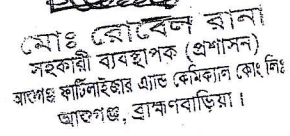 মোঃ রোবেল রানা
সহকারী ব্যবস্থাপক (প্রশাসন)
আশুগঞ্জ ফার্টিলাইজার এ্যান্ড কেমিক্যাল কোং লিঃ
আশুগঞ্জ, ব্রাহ্মণবাড়িয়া।